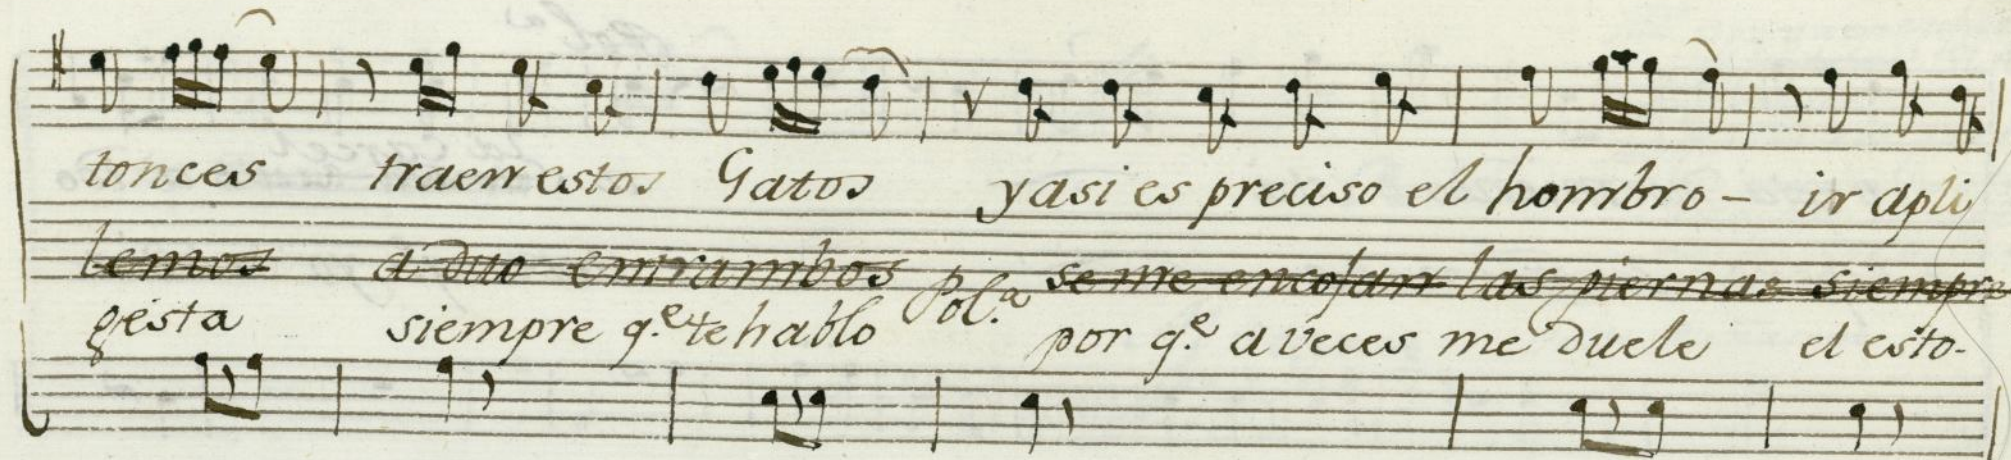 tonces traen estos Gatos y asi es preciso el hombro - ir apli
lemos a duo entrambos se me encojan las piernas siempre
gesta siempre q.e te hablo Pol.a por q.e a veces me duele el esto-